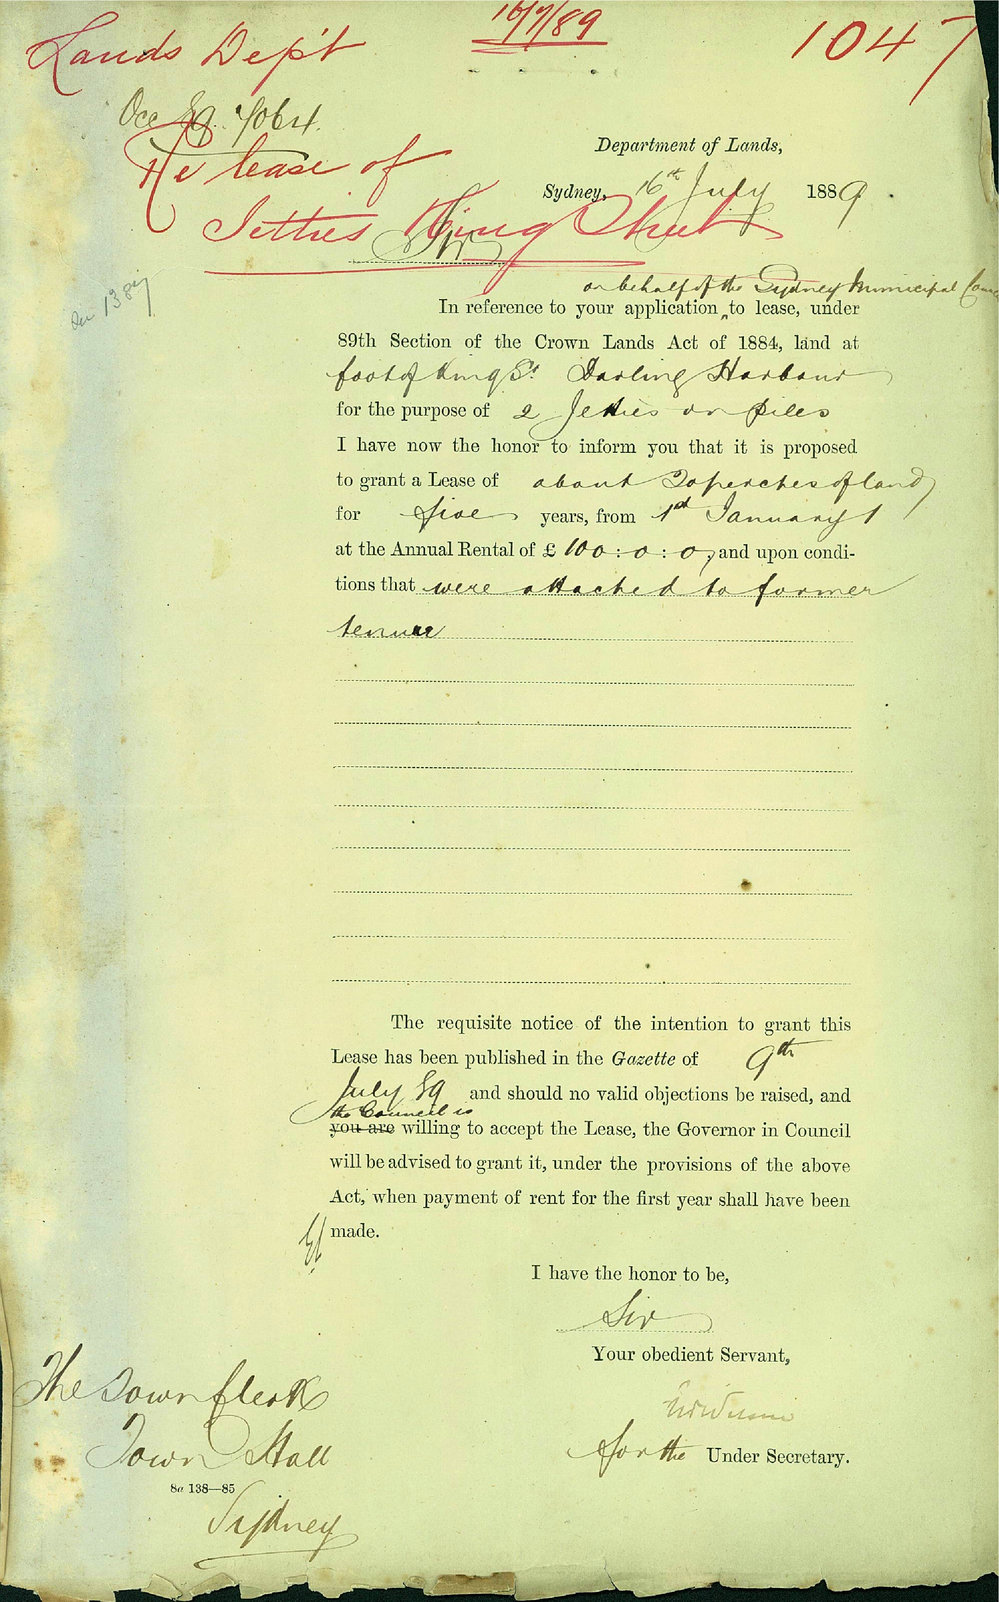 16/7/89
Lands Dep't
1047
Occ 89. 7064.
Re lease of
Jetties King Street
Department of Lands,
Sydney, 16th July 1889.
Sir
on behalf of the Sydney Municipal
In reference to your application, to lease, under
89th Section of the Crown Lands Act of 1884, land at
foot of King St. Darling Harbour
for the purpose of 2 Jetties on piles
I have now the honor to inform you that it is proposed
to grant a Lease of about 20 perches of land
for five years, from 1st January
at the Annual Rental of £ 100 : 0 : 0, and upon condi-
tions that were attached to former
tenure
The requisite notice of the intention to grant this
Lease has been published in the Gazette of 9th
July 89 and should no valid objections be raised, and
the Council is
you are willing to accept the Lease, the Governor in Council
will be advised to grant it, under the provisions of the above
Act, when payment of rent for the first year shall have been
made.
I have the honor to be,
Sir
Your obedient Servant,
for the Under Secretary.
The Town Clerk
Town Hall
8a 138—85
Sydney